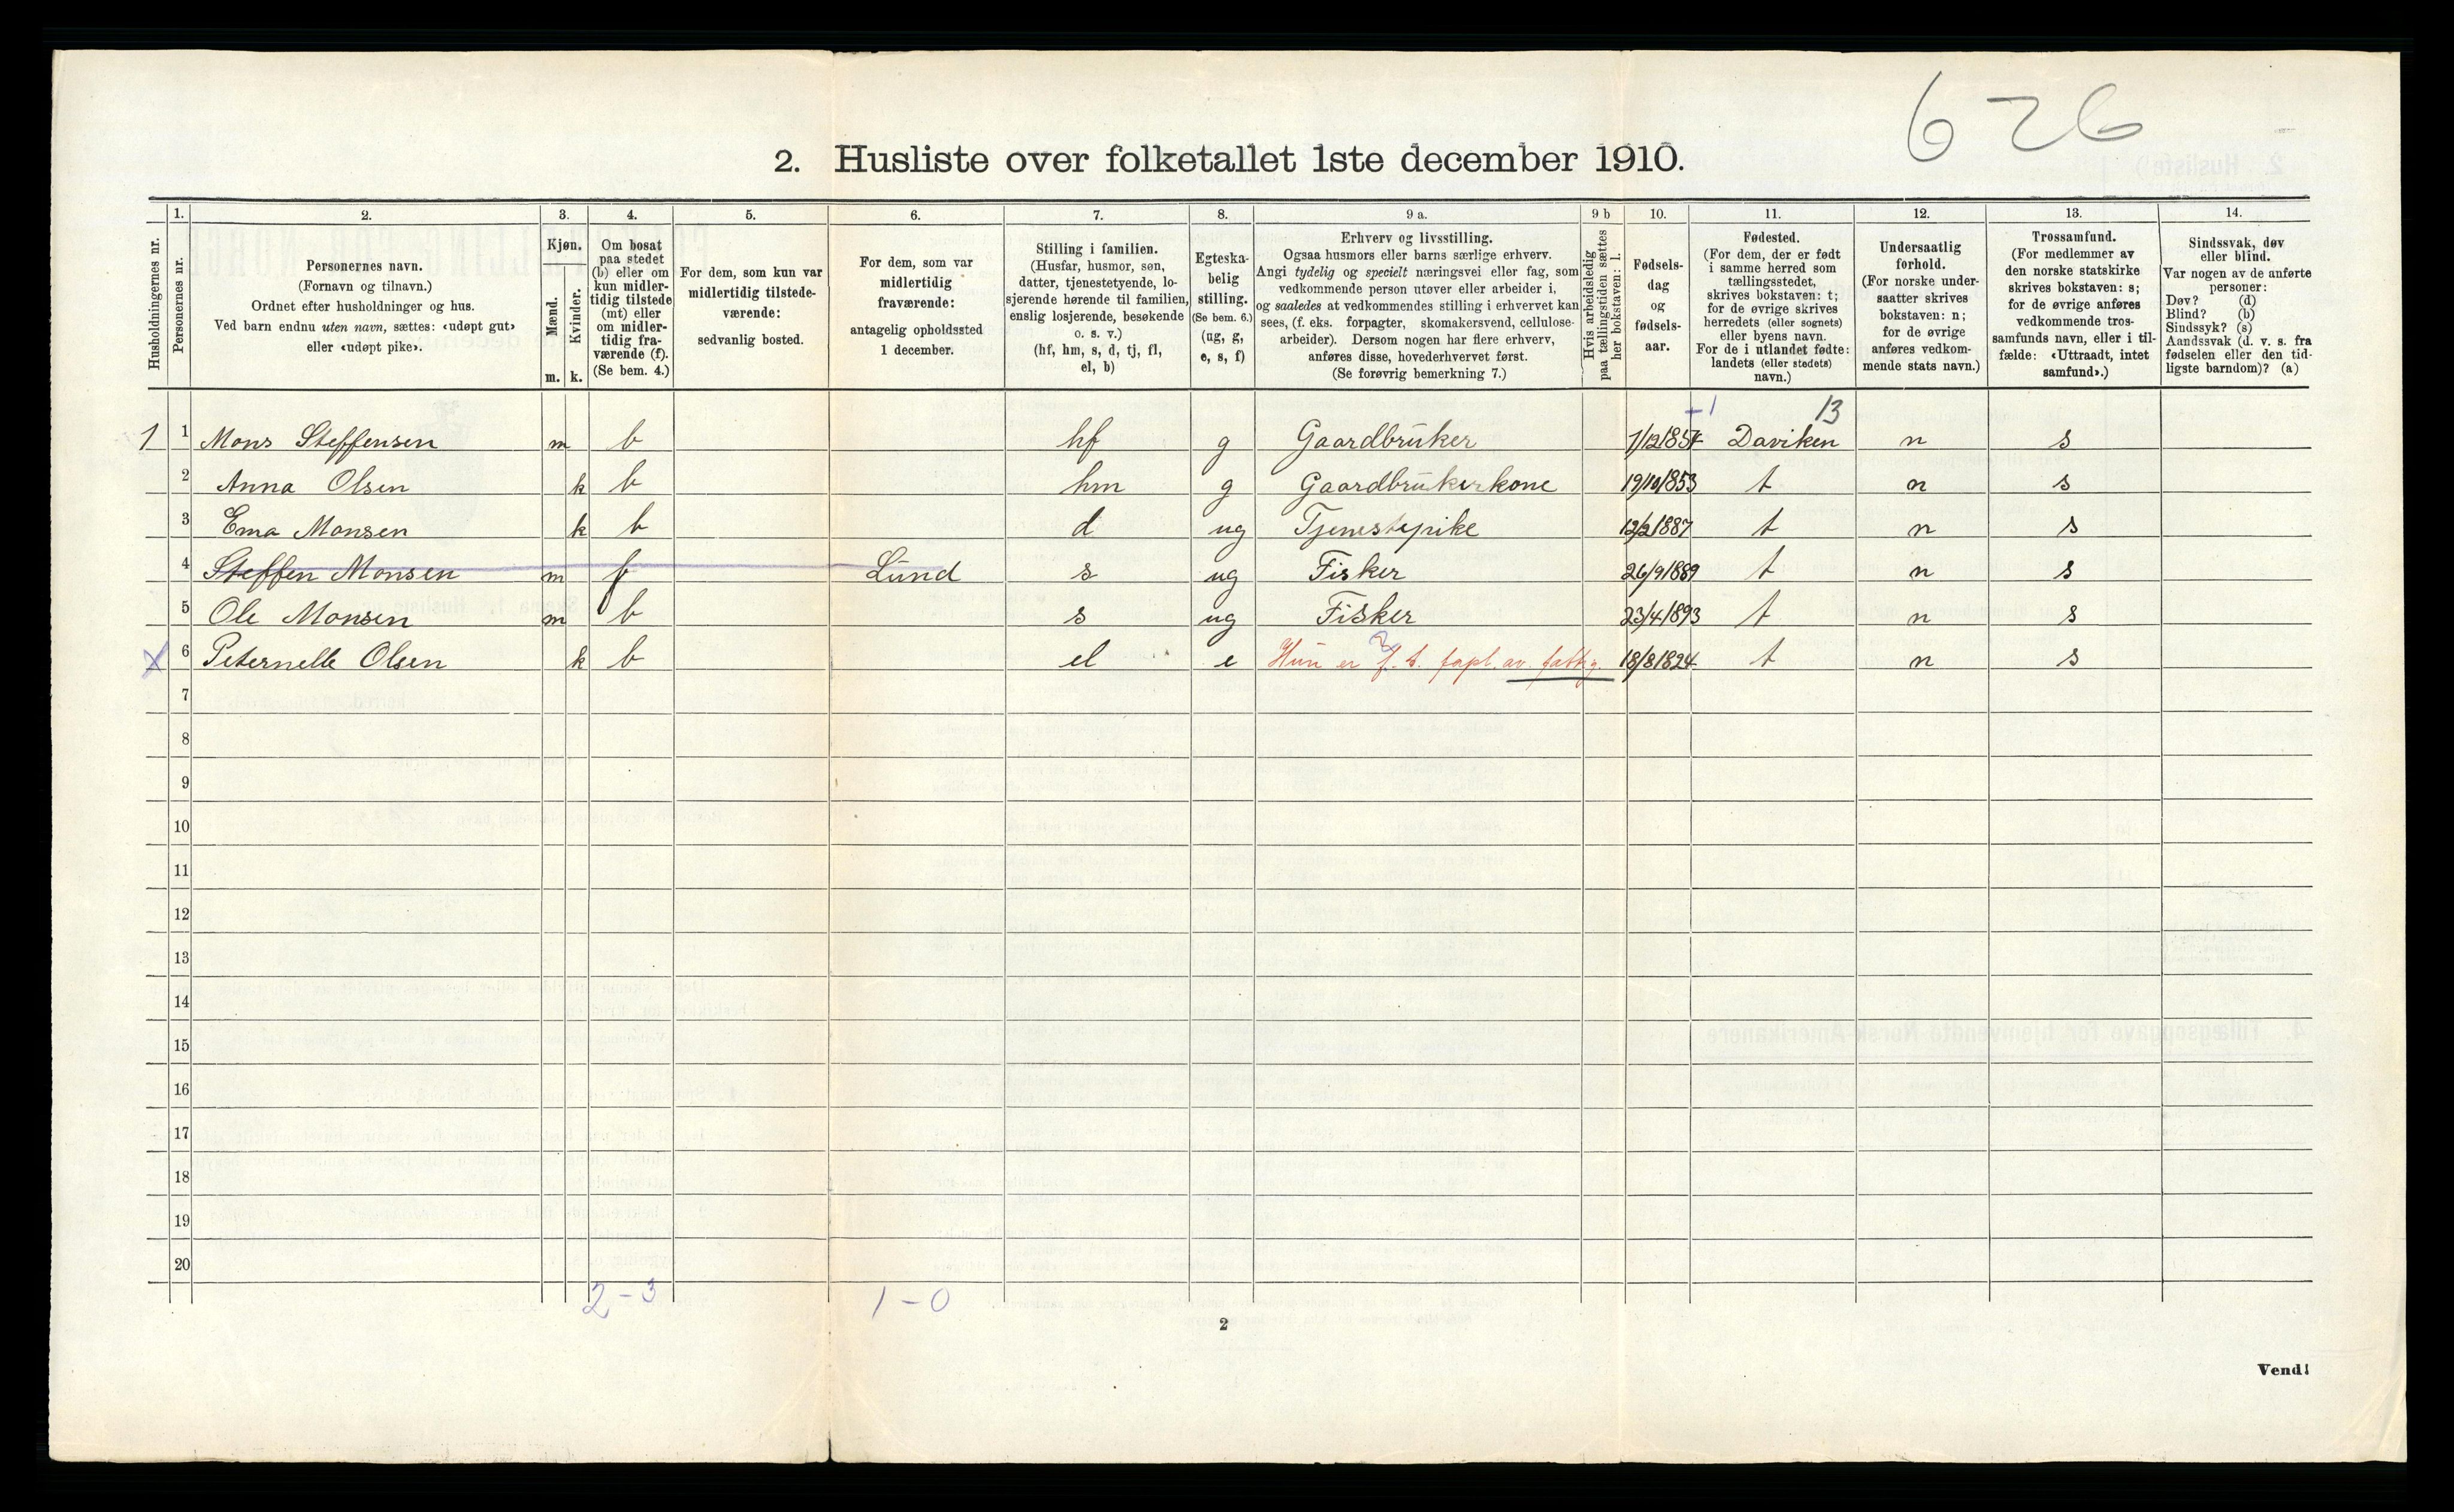 626
2. Husliste over folketallet 1ste december 1910.
Husholdningernes nr.
1.
Personernes nr.
2.
Personernes navn.
(Fornavn og tilnavn.)
Ordnet efter husholdninger og hus.
Ved barn endnu uten navn, sættes: «udøpt gut»
eller «udøpt pike».
3.
Kjøn.
Mænd.
Kvinder.
m. k.
4.
Om bosat
paa stedet
(b) eller om
kun midler-
tidig tilstede
(mt) eller
om midler-
tidig fra-
værende (f).
(Se bem. 4.)
5.
For dem, som kun var
midlertidig tilstede-
værende:
sedvanlig bosted.
6.
For dem, som var
midlertidig
fraværende:
antagelig opholdssted
1 december.
7.
Stilling i familien.
(Husfar, husmor, søn,
datter, tjenestetyende, lo-
sjerende hørende til familien,
enslig losjerende, besøkende
o. s. v.)
(hf, hm, s, d, tj, fl,
el, b)
8.
Egteska-
belig
stilling.
(Se bem. 6.)
(ug, g,
e, s, f)
9 a.
Erhverv og livsstilling.
Ogsaa husmors eller barns særlige erhverv.
Angi tydelig og specielt næringsvei eller fag, som
vedkommende person utøver eller arbeider i,
og saaledes at vedkommendes stilling i erhvervet kan
sees, (f. eks. forpagter, skomakersvend, cellulose-
arbeider). Dersom nogen har flere erhverv,
anføres disse, hovederhvervet først.
(Se forøvrig bemerkning 7.)
9 b
Hvis arbeidsledig
paa tællingstiden sættes
her bokstaven: l.
10.
Fødsels-
dag
og
fødsels-
aar.
11.
Fødested.
(For dem, der er født
i samme herred som
tællingsstedet,
skrives bokstaven: t;
for de øvrige skrives
herredets (eller sognets)
eller byens navn.
For de i utlandet fødte:
landets (eller stedets)
navn.)
12.
Undersaatlig
forhold.
(For norske under-
saatter skrives
bokstaven: n;
for de øvrige
anføres vedkom-
mende stats navn.)
13.
Trossamfund.
(For medlemmer av
den norske statskirke
skrives bokstaven: s;
for de øvrige anføres
vedkommende tros-
samfunds navn, eller i til-
fælde: «Uttraadt, intet
samfund».)
14.
Sindssvak, døv
eller blind.
Var nogen av de anførte
personer:
Døv? (d)
Blind? (b)
Sindssyk? (s)
Aandssvak (d. v. s. fra
fødselen eller den tid-
ligste barndom)? (a)
+1 13
1 1 Mons Steffensen m b hf g Gaardbruker 1/12 1854 Daviken n s
2 Anna Olsen k b hm g Gaardbrukerkone 19/10 1853 t n s
3 Ema Monsen k b d ug Tjenestepike 12/2 1887 t n s
4 Steffen Monsen m f Lund s ug Fisker 26/9 1889 t n s
5 Ole Monsen m b s ug Fisker 23/4 1893 t n s
x 6 Peternelle Olsen k b el e Hun er f. t. av fattig. 18/8 1824 t n s
7
8
9
10
11
12
13
14
15
16
17
18
19
20
2 - 3 1 - 0
2
Vend!